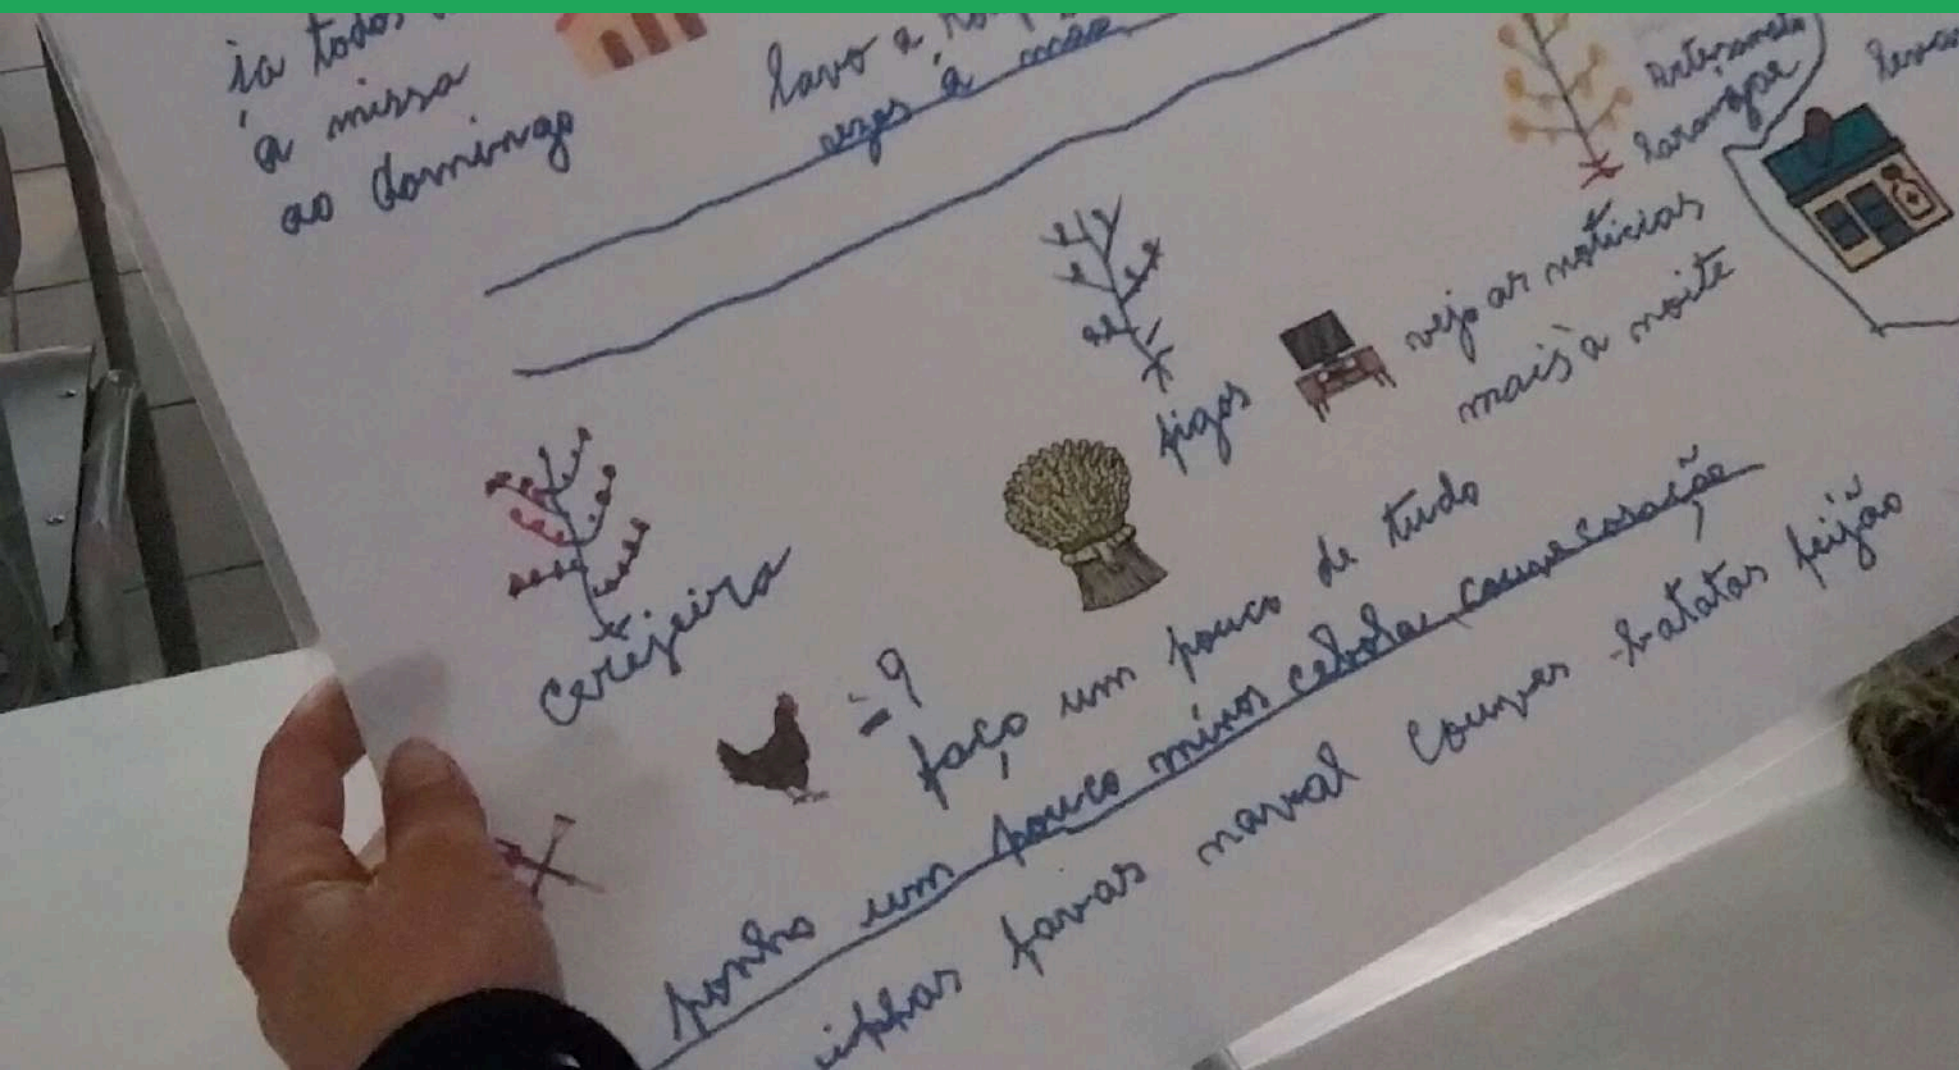 ia todos
à missa
ao domingo
lavo a
vezes à mão
Artesanato
laranja
figos
vejo as noticias
mais à noite
cerejeira
= 9
faço um pouco de tudo
ponho um pouco minos cebola, couve coração
favas naval couves batatas feijão